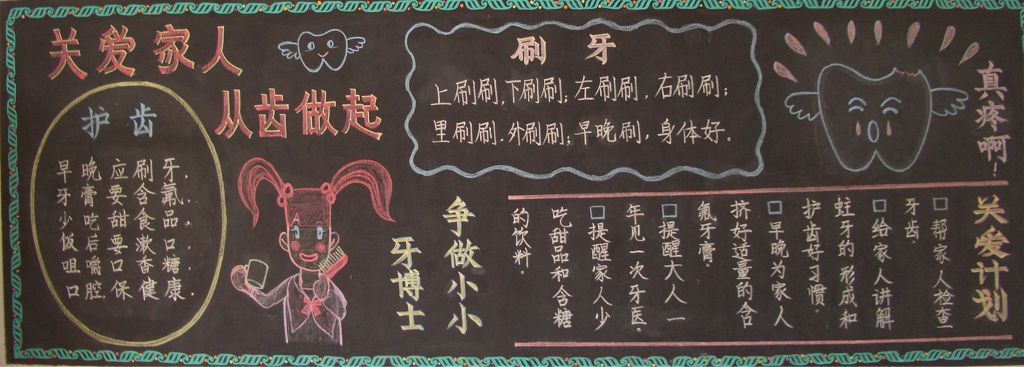 关爱家人
从齿做起
护齿
早晚应刷牙.
牙膏要含氟.
少吃甜食品.
饭后要漱口.
咀嚼口香糖.
口腔保健康.
刷牙
上刷刷,下刷刷;左刷刷,右刷刷;
里刷刷.外刷刷;早晚刷,身体好。
真疼啊!
争做小小
牙博士
关爱计划
□帮家人检查
牙齿.
□给家人讲解
蛀牙的形成和
护齿好习惯.
□早晚为家人
挤好适量的含
氟牙膏.
□提醒大人一
年见一次牙医.
□提醒家人少
吃甜品和含糖
的饮料.